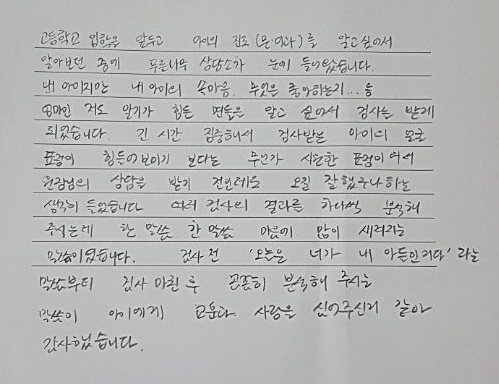 고등학교 입학을 앞두고 아이의 진로(문·이과)를 알고싶어서
알아보던 중에 푸른나무 상담소가 눈에 들어왔습니다.
내 아이지만 내 아이의 속마음, 무엇을 좋아하는지... 등
엄마인 저도 알기가 힘든 면들을 알고 싶어서 검사를 받게
되었습니다. 긴 시간 집중해서 검사받은 아이의 얼굴
표정이 힘들어보이기 보다는 무언가 시원한 표정이어서
원장님의 상담을 받기 전인데도 오길 잘했구나하는
생각이 들었습니다. 여러 검사의 결과를 하나씩 분석해
주시는데 한 말씀 한 말씀 마음에 많이 새겨지는
말씀이었습니다. 검사 전 '오늘은 너가 내 아들인거다' 라는
말씀부터 검사 마친 후 꼼꼼히 분석해 주시는
말씀이 아이에게 고운 사랑을 심어주신거 같아
감사했습니다.